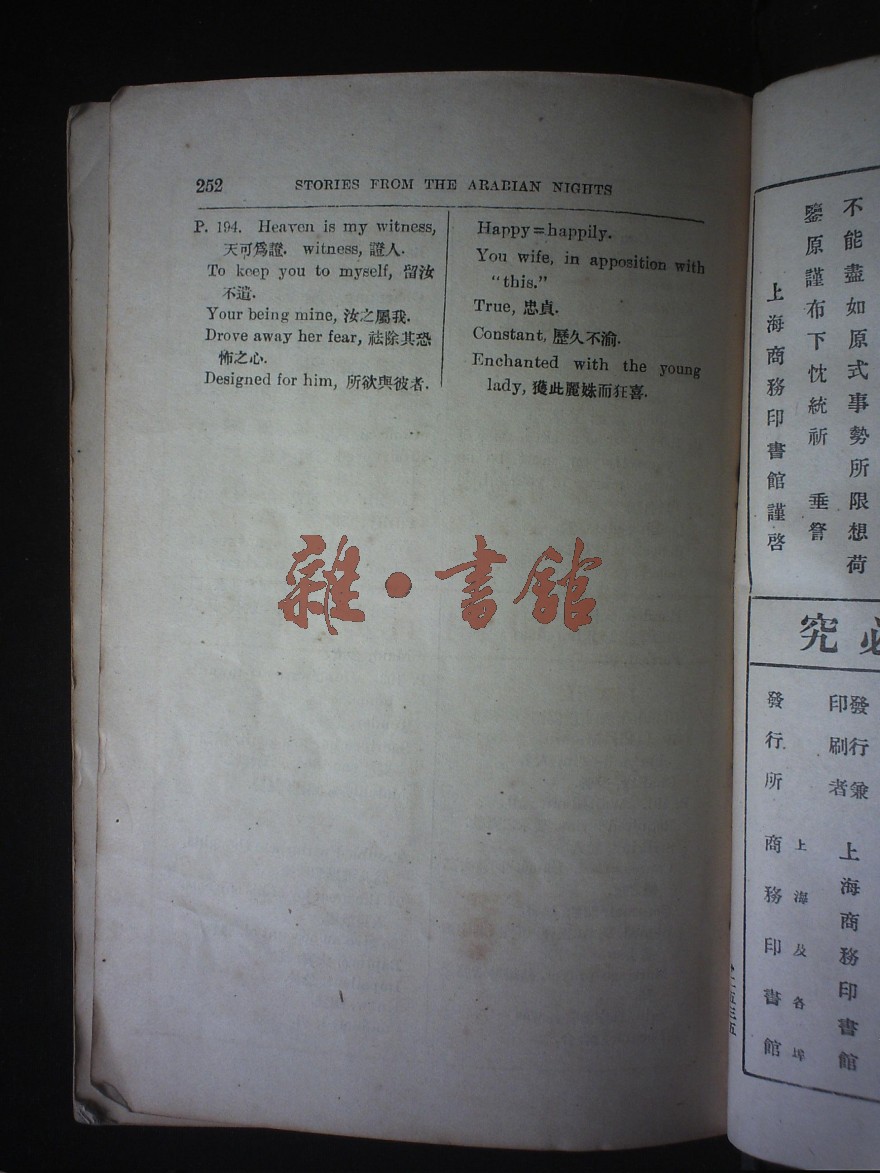 252 STORIES FROM THE ARABIAN NIGHTS
P. 194. Heaven is my witness,
天可爲證. witness, 證人.
To keep you to myself, 留汝
不遣.
Your being mine, 汝之屬我.
Drove away her fear, 祛除其恐
怖之心.
Designed for him, 所欲與彼者.
Happy=happily.
You wife, in apposition with
"this."
True, 忠貞.
Constant, 歷久不渝.
Enchanted with the young
lady, 獲此麗姝而狂喜.
雜•書館
不能盡如原式事勢所限想荷
鑒原謹布下忱統祈 垂詧
上海商務印書館謹啓
必究
發行兼
印刷者
上海商務印書館
發行所
上海及各埠
商務印書館